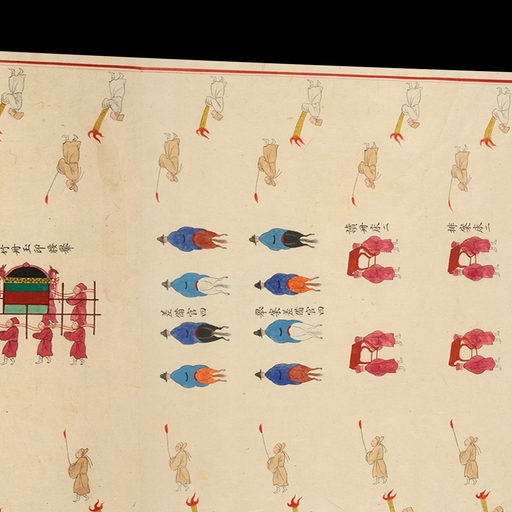 竹冊玉印腰轝
差備官四
擧案差備官四
讀冊床二
排案床二